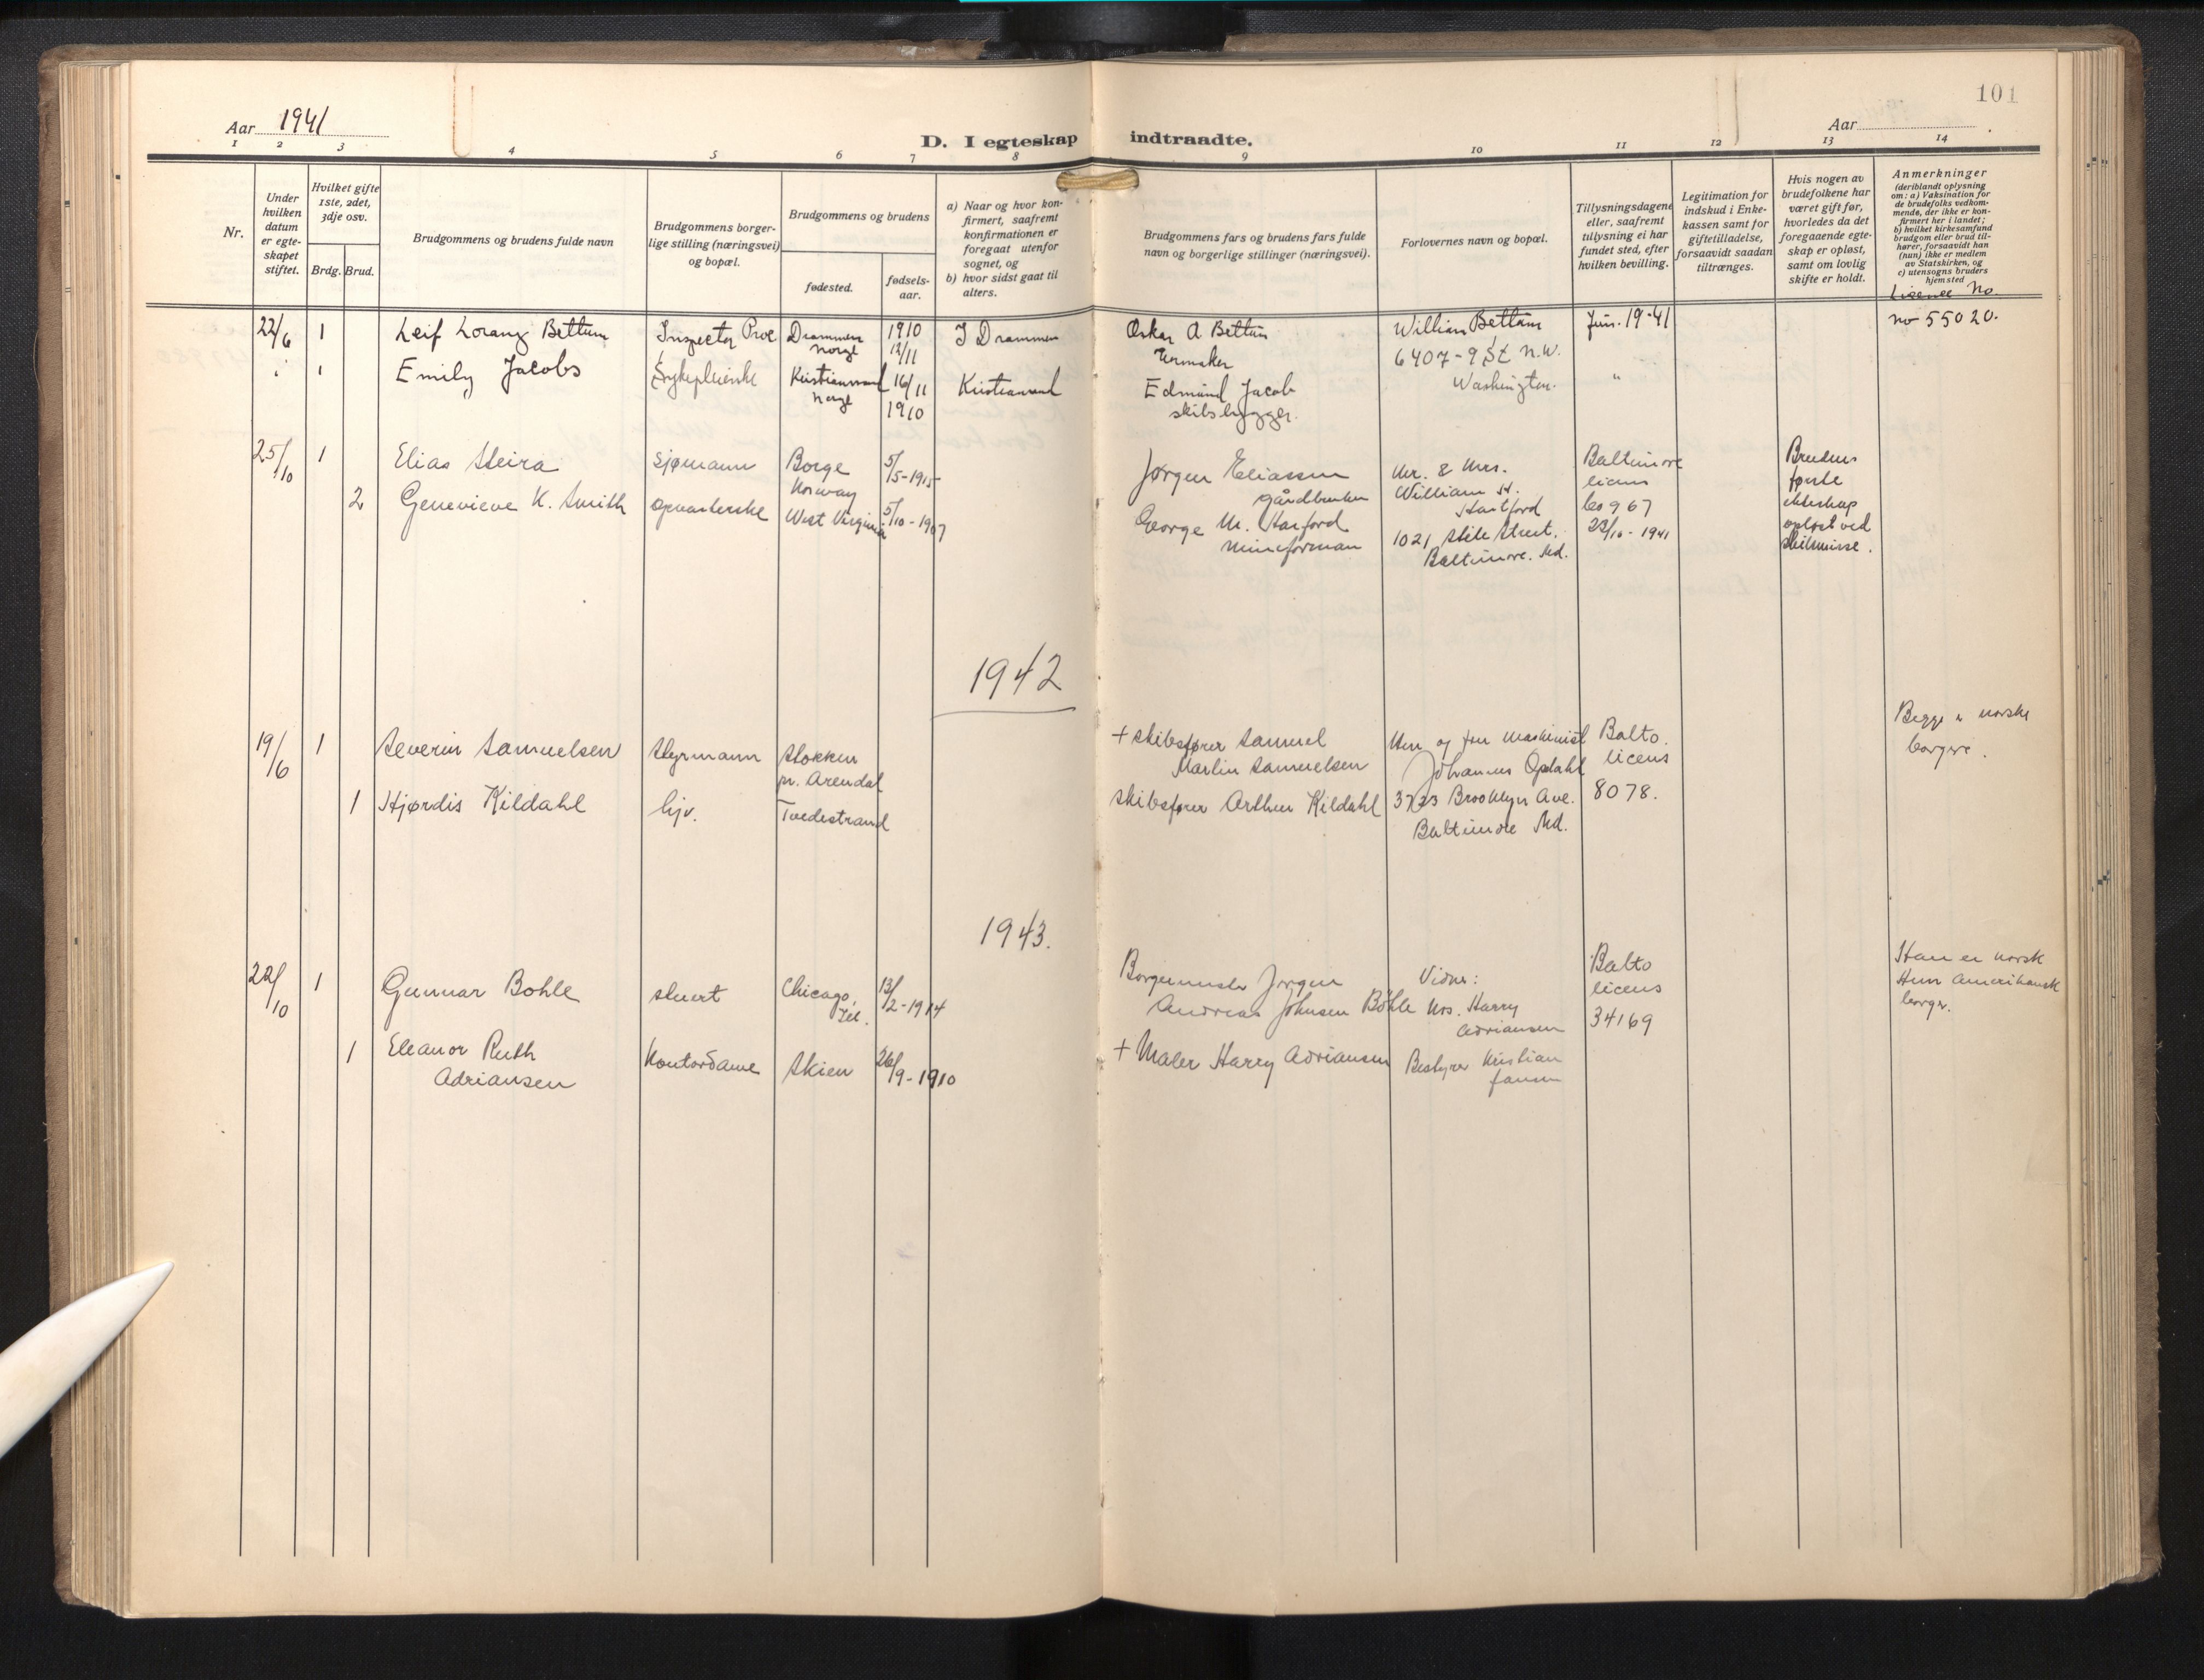 101
Aar 1941
Aar
D. I egteskap indtraadte.
1 2 3 4 5 6 7 8 9 10 11 12 13 14
Nr.
Under
hvilken
datum
er egte-
skapet
stiftet.
Hvilket gifte
1ste, 2det,
3dje osv.
Brdg. Brud.
Brudgommens og brudens fulde navn
Brudgommens borger-
lige stilling (næringsvei)
og bopæl.
Brudgommens og brudens
fødested.
fødsels-
aar.
a) Naar og hvor kon-
firmert, saafremt
konfirmationen er
foregaat utenfor
sognet, og
b) hvor sidst gaat til
alters.
Brudgommens fars og brudens fars fulde
navn og borgerlige stillinger (næringsvei).
Forlovernes navn og bopæl.
Tillysningsdagene
eller, saafremt
tillysning ei har
fundet sted, efter
hvilken bevilling.
Legitimation for
indskud i Enke-
kassen samt for
giftetilladelse,
forsaavidt saadan
tiltrænges.
Hvis nogen av
brudefolkene har
været gift før,
hvorledes da det
foregaaende egte-
skap er opløst,
samt om lovlig
skifte er holdt.
Anmerkninger
(deriblandt oplysning
om: a) Vaksination for
de brudefolks vedkom-
mende, der ikke er kon-
firmert her i landet;
b) hvilket kirkesamfund
brudgom eller brud til-
hører, forsaavidt han
(hun) ikke er medlem
av Statskirken, og
c) utensogns bruders
hjemsted
License No.
no 55020.
22/6 1
Leif Lorang Bettum
Inspector
Drammen
Norge
1910
12/11
I Drammen
Oskar A Bettum
Urmaker
William Bettum
6407-9 St N.W.
Washington.
Jun. 19-41
" 1
Emily Jacobs
Sykepleierske
Kristiansand
Norge
16/11
1910
Kristiansand
Edmund Jacob
skibsbygger.
"
25/10 1
Elias Steira
sjømann
Borge
Norway
5/5-1915
Jørgen Eliassen
gårdbruker
Mr. & Mrs.
William H.
Hartford
1021 Stile Street.
Baltimore. Md.
Baltimore
licens
60967
23/10-1941
Brudens
første
ekteskap
opløst ved
skilsmisse.
2 Genevieve K. Smith
opvarterske
West Virginia
5/10-1907
George M. Harford
mineforman
1942
19/6 1
Severin Samuelsen
styrmann
Stokken
pr. Arendal
+ skibsfører Samuel
Martin Samuelsen
Herr og fru maskinist
Johannes Opdahl
3723 Brooklyn Ave.
Baltimore Md.
Balto.
licens
8078.
Begge er norske
borgere.
1 Hjørdis Kildahl
hjv.
Tvedestrand
skibsfører Arthur Kildahl
1943.
22/10 1
Gunnar Bohle
stuert
Chicago,
Ill.
13/2-1914
Borgermester Jørgen
Andreas Johnsen Bøhle
Vidner:
Mrs. Harry
Adriansen
Bestyrer Kristian
Jansen
Balto
licens
34169
Han er norsk
Hun amerikansk
borger.
1 Eleanor Ruth
Adriansen
Kontordame
Skien
26/9-1910
+ Maler Harry Adriansen